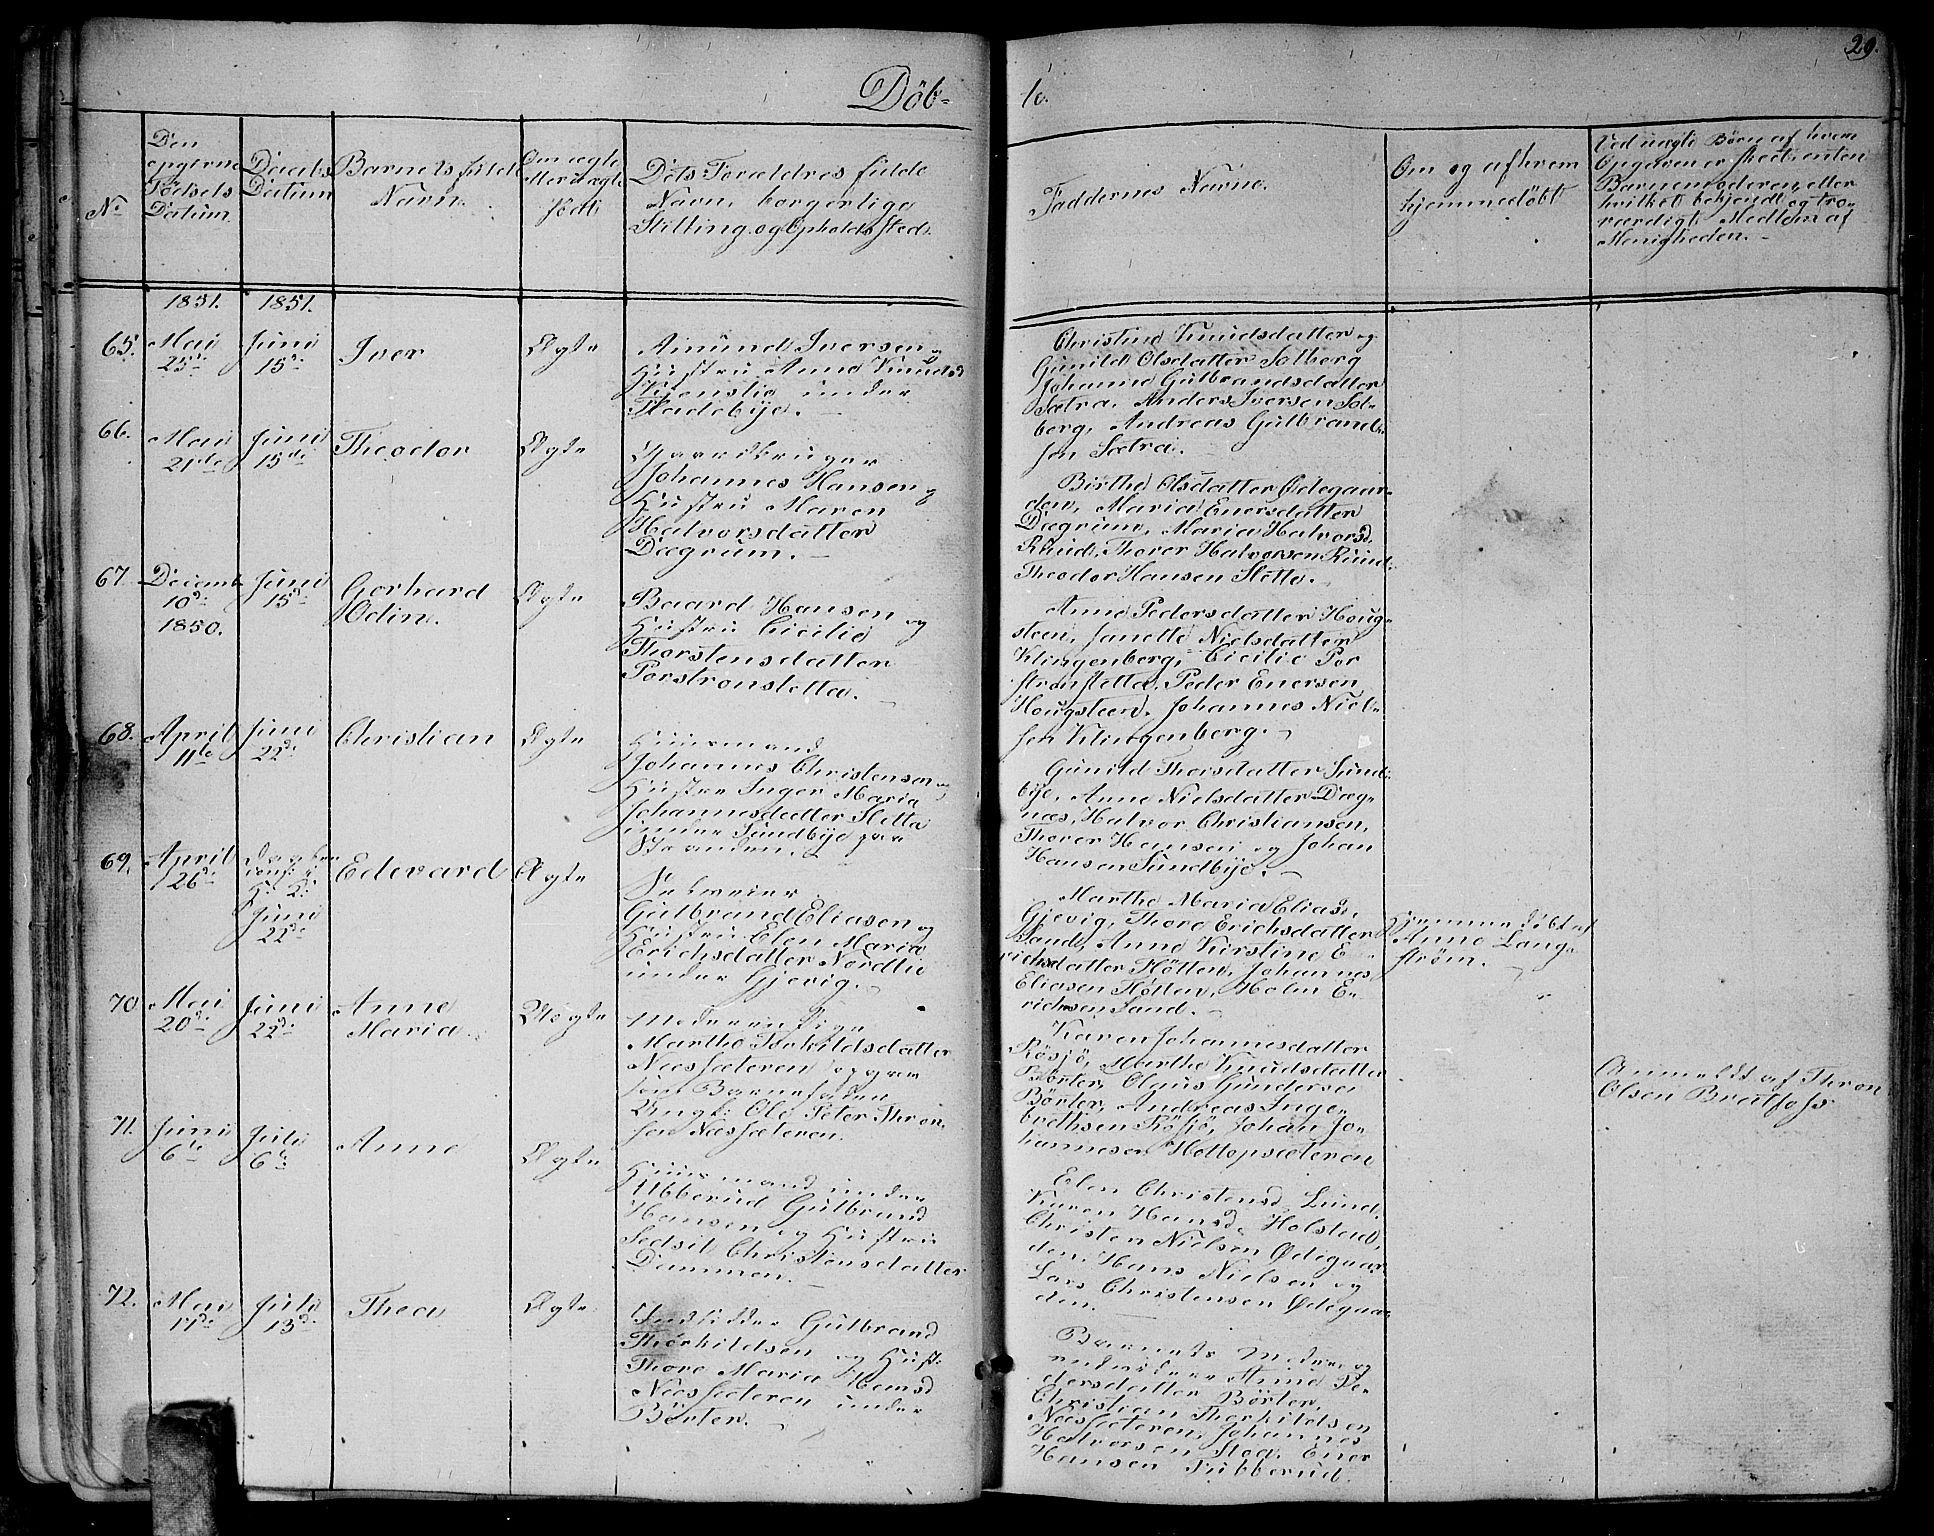 29.
Döb-
te.
No
Den opgivne Fødsels Datum.
Daabs Datum
Barnets fulde Navn.
Om ægte eller uægte født
Dets Forældres fulde Navn, borgerlige Stilling og Opholdssted.
Faddernes Navne.
Om og af hvem hjemmedøbt
Ved uægte Børn af hvem Opgaven er
Barnemoderen, eller
hvilket bekjendt og tro-
værdigt Medlem af
Menigheden.
1851. 1851.
65. Mai 25de Juni 15de Iver Ægte
Amund Iversen
Hustru Anne Knudsd
under
Fladebye.
Christine Knudsdatter og
Gunild Olsdatter Solberg
Johanne Gulbrandsdatter
Sætra, Anders Iversen Sol-
berg, Andreas Gulbrand-
sen Sætra.
66. Mai 21de Juni 15de Theodor Ægte
Gaardbruger
Johannes Hansen og
Hustru Maren
Halvorsdatter
Dægrum.
Birthe Olsdatter Ødegaar-
den, Maria Enersdatter
Dægrum, Maria Halvorsd.
Ruud, Thorer Halvorsen Ruud
Theodor Hansen Sletta.
67. Decemb. 10de 1850. Juni 15de Gerhard Odin. Ægte
Baard Hansen og
Hustru Cicilie
Thorstensdatter
Porstronsletta.
Anne Pedersdatter Houg-
steen, Janette Nielsdatter
Klingenberg, Cicilie Por
stronsletta, Peder Enersen
Hougsteen, Johannes Niel-
sen Klingenberg.
68. April 11te Juni 22de Christian Ægte
Huusmand
Johannes Christensen og
Hustru Inger Maria
Johannesdatter Sletta
under Sundbye paa
Stranden.
Gunild Thorsdatter Sund-
bye, Anne Nielsdatter Dæg-
næs, Halvor Christiansen,
Thorer Hansen og Johan
Hansen Sundbye.
69. April 26de Juni 22de Edevard Ægte
Gulbrand Eliasen og
Hustru Elen Maria
Erichsdatter Nordlie
under Gjevig.
Marthe Maria Eliasd.
Gjevig, Thore Erichsdatter
Sand, Anne Kirstine E-
richsdatter Fløtten, Johannes
Eliasen Fløtten, Holm E-
richsen Sand.
Hjemmedøbt af
Anne Lang-
strøm.
70. Mai 20de Juni 22de Anne Maria Uægte
Moderen Pige
Marthe Torkildsdatter
Næssæteren opgav
som Barnefader
Ungk: Ole Peter Thron-
sen Næssæteren.
Karen Johannesdatter
Røsjø, Marthe Knudsdatter
Børter, Olaus Gundersen
Børter, Andreas Inge-
brethsen Røsjø, Johan Jo-
hannesen Hottopsæteren
Anmeldt af Thron
Olsen Bratfoss
71. Juni 6te Juli 6te Anne Ægte
Huusmand under
Ubberud Gulbrand
Hansen og Hustru
Sedsil Christensdatter
Dammen.
Elen Christensd. Lund,
Karen Hansd. Holstad,
Christen Nielsen Ødegaar-
den, Hans Nielsen og
Lars Christensen Ødegaar-
den.
72. Mai 17de Juli 13de Thea Ægte
Inderst Gulbrand
Thorkildsen og Hust.
Thore Maria Hansd
Næssæteren under
Børter.
Barnets Moder og
Anne Pe-
dersdatter Børter,
Christian Thorkildsen
Næssæteren, Johannes
Halvorsen Stoa, Ener
Hansen Tubberud.